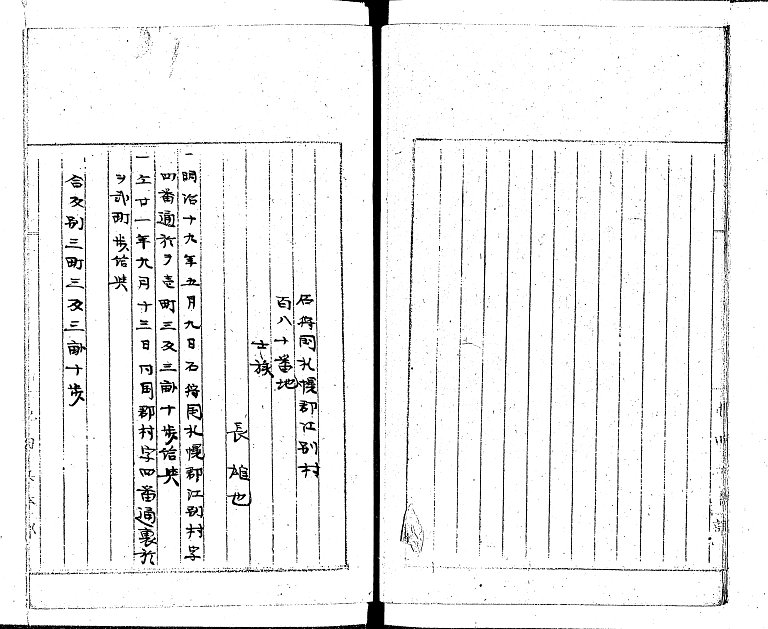 石狩国札幌郡江別村
百八十番地
士族
長雄也
一明治十九年五月九日石狩国札幌郡江別村字
四番通於ヲ壱町三反三畝十歩給与
一仝廿一年九月十三日同国郡村字四番通裏於
ヲ弐町歩給与
合反別三町三反三畝十歩